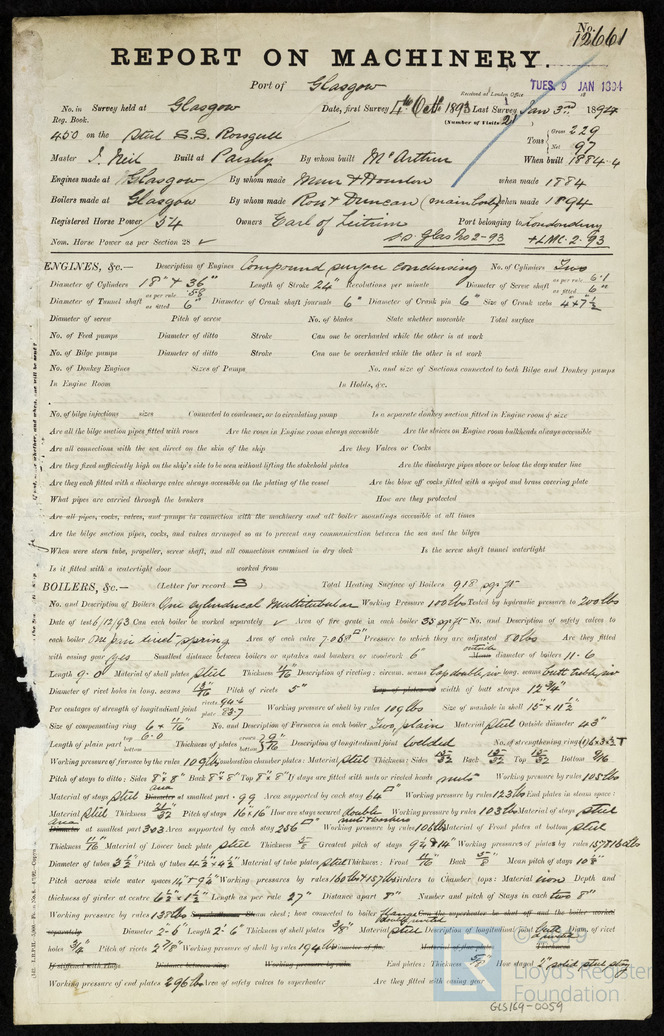 No. 12661
REPORT ON MACHINERY.
Port of Glasgow
Received at London Office TUES. 9 JAN 1894
No. in Survey held at Glasgow Date, first Survey 4th Octr 1893 Last Survey Jan 3rd 1894
Reg. Book. (Number of Visits 21)
450 on the Steel S.S. Rossgull Tons Gross 229 Net 97
Master J. Neil Built at Paisley By whom built McArthur When built 1884-4
Engines made at Glasgow By whom made Muir & Houston when made 1884
Boilers made at Glasgow By whom made Ross & Duncan (main boiler) when made 1894
Registered Horse Power 54 Owners Earl of Leitrim Port belonging to Londonderry
Nom. Horse Power as per Section 28 S.S. Glas No 2-93 +LMC. 2. 93
ENGINES, &c.— Description of Engines Compound surface condensing No. of Cylinders Two
Diameter of Cylinders 18" & 36" Length of Stroke 24" Revolutions per minute Diameter of Screw shaft as per rule 6.1 as fitted 6"
Diameter of Tunnel shaft as per rule 5.8 as fitted 6" Diameter of Crank shaft journals 6" Diameter of Crank pin 6" Size of Crank webs 4" x 7½
Diameter of screw Pitch of screw No. of blades State whether moveable Total surface
No. of Feed pumps Diameter of ditto Stroke Can one be overhauled while the other is at work
No. of Bilge pumps Diameter of ditto Stroke Can one be overhauled while the other is at work
No. of Donkey Engines Sizes of Pumps No. and size of Suctions connected to both Bilge and Donkey pumps
In Engine Room In Holds, &c.
No. of bilge injections sizes Connected to condenser, or to circulating pump Is a separate donkey suction fitted in Engine room & size
Are all the bilge suction pipes fitted with roses Are the roses in Engine room always accessible Are the sluices on Engine room bulkheads always accessible
Are all connections with the sea direct on the skin of the ship Are they Valves or Cocks
Are they fixed sufficiently high on the ship's side to be seen without lifting the stokehold plates Are the discharge pipes above or below the deep water line
Are they each fitted with a discharge valve always accessible on the plating of the vessel Are the blow off cocks fitted with a spigot and brass covering plate
What pipes are carried through the bunkers How are they protected
Are all pipes, cocks, valves, and pumps in connection with the machinery and all boiler mountings accessible at all times
Are the bilge suction pipes, cocks, and valves arranged so as to prevent any communication between the sea and the bilges
When were stern tube, propeller, screw shaft, and all connections examined in dry dock Is the screw shaft tunnel watertight
Is it fitted with a watertight door worked from
BOILERS, &c.— (Letter for record S) Total Heating Surface of Boilers 918 sq. ft
No. and Description of Boilers One cylindrical Multitubular Working Pressure 100 lbs Tested by hydraulic pressure to 200 lbs
Date of test 6/12/93 Can each boiler be worked separately Area of fire grate in each boiler 35 sq ft No. and Description of safety valves to
each boiler One pair direct spring Area of each valve 7.06 □" Pressure to which they are adjusted 80 lbs Are they fitted
with easing gear yes Smallest distance between boilers or uptakes and bunkers or woodwork 6" outside Mean diameter of boilers 11-6
Length 9-0 Material of shell plates steel Thickness 11/16 Description of riveting: circum. seams lap double riv long. seams butt treble riv
Diameter of rivet holes in long. seams 13/16 Pitch of rivets 5" Lap of plates or width of butt straps 12¾"
Per centages of strength of longitudinal joint rivets 94.6 plate 83.7 Working pressure of shell by rules 109 lbs Size of manhole in shell 15" x 11½"
Size of compensating ring 6 x 11/16 No. and Description of Furnaces in each boiler Two, plain Material steel Outside diameter 43"
Length of plain part top 6-0 bottom Thickness of plates crown bottom 9/16 Description of longitudinal joint welded No. of strengthening rings
Working pressure of furnace by the rules 109 lbs Combustion chamber plates: Material steel Thickness: Sides Back Top Bottom 9/16
Pitch of stays to ditto: Sides 8" x 8" Back 8" x 8" Top 8" x 8" If stays are fitted with nuts or riveted heads nuts Working pressure by rules 105 lbs
Material of stays steel area Diameter at smallest part .99 Area supported by each stay 64 □" Working pressure by rules 123 lbs End plates in steam space:
Material steel Thickness Pitch of stays 16" x 16" How are stays secured double nuts & washers Working pressure by rules 103 lbs Material of stays steel
area Diameter at smallest part 3.03 Area supported by each stay 256 □" Working pressure by rules 106 lbs Material of Front plates at bottom steel
Thickness 11/16 Material of Lower back plate steel Thickness 5/8 Greatest pitch of stays 9½ & 14" Working pressure of plates by rules 157 & 160 lbs
Diameter of tubes 3½" Pitch of tubes 4½" x 4½" Material of tube plates steel Thickness: Front 11/16 Back 5/8" Mean pitch of stays 10⅛"
Pitch across wide water spaces 14" & 9½" Working pressures by rules 160 lbs & 157 lbs Girders to Chamber tops: Material iron Depth and
thickness of girder at centre 6½ x 1½" Length as per rule 27" Distance apart 8" Number and pitch of Stays in each two 8"
Working pressure by rules 138 lbs Superheater or Steam chest; how connected to boiler flange double riveted Can the superheater be shut off and the boiler worked
separately Diameter 2-6" Length 2-6" Thickness of shell plates 3/8" Material steel Description of longitudinal joint Diam. of rivet
holes ¾" Pitch of rivets 2⅞" Working pressure of shell by rules 194 lbs Diameter of flue Material of flue plates Thickness
If stiffened with rings Distance between rings Working pressure by rules End plates: Thickness 5/8" How stayed 2" solid steel stay
Working pressure of end plates 296 lbs Area of safety valves to superheater Are they fitted with easing gear
© 2019
Lloyd's Register
Foundation
GLS169-0059